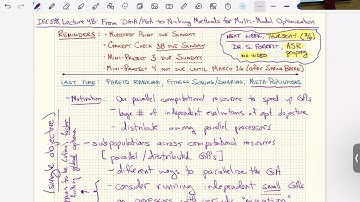 IEE 598, Lecture 4B: From DGA/PGA to Niching Methods for Multi-Modal Optimization
REMINDERS:
• MUDDIEST POINT DUE SUNDAY
• CONCEPT CHECK 3B DUE SUNDAY
• MINI-PROJECT 3 DUE SUNDAY
• MINI-PROJECT 4 NOT DUE UNTIL MARCH 16 (AFTER SPRING BREAK)
NEXT WEEK, THURSDAY
DR. S. FORREST, ASU
NO VIDEO
LAST TIME: PARETO RANKING, FITNESS SCALING/SHARING, META-POPULATIONS
- Motivation: Use parallel computational resources to speed up GA's
- large # of independent evaluations of opt. objective
- distribute among parallel processors
- subpopulations across computational resources
[parallel / distributed GA's]
- different ways to parallelize the GA
- consider running independent small GAs
(single objective)